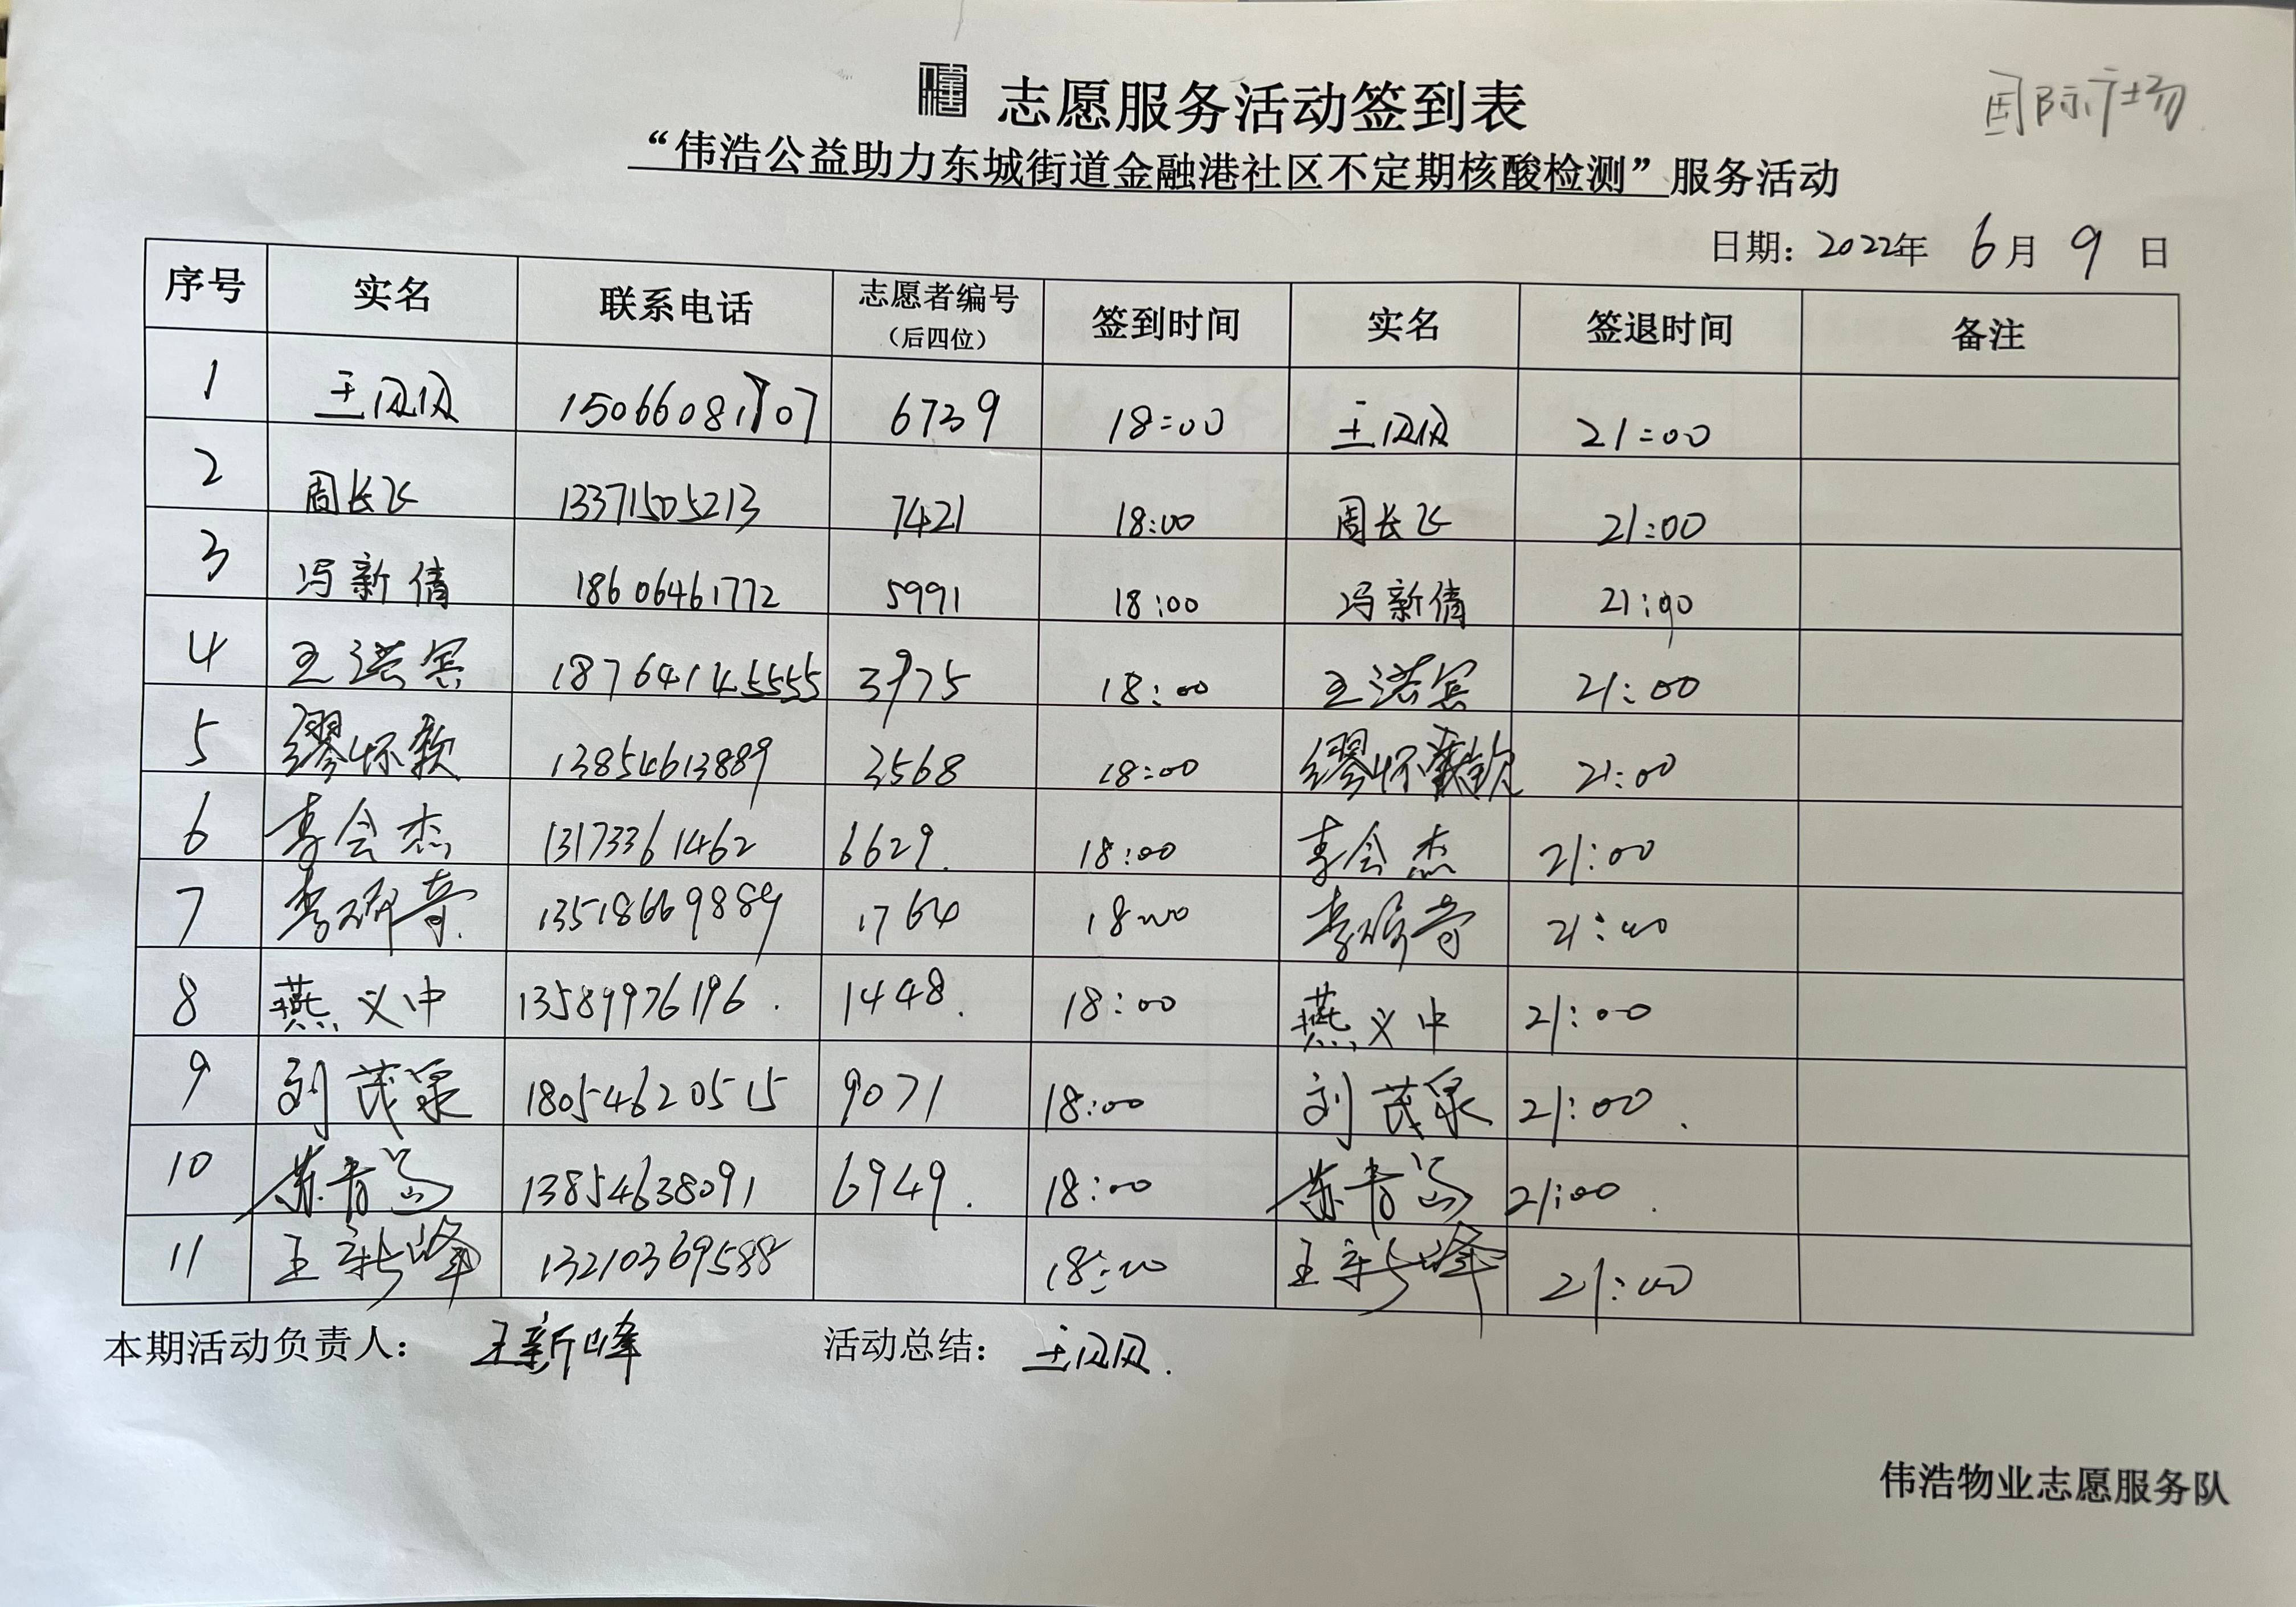 志愿服务活动签到表
国际广场
“伟浩公益助力东城街道金融港社区不定期核酸检测”服务活动
日期：2022年 6月 9 日
序号 实名 联系电话 志愿者编号（后四位） 签到时间 实名 签退时间 备注
1 王贝贝 15066081707 6739 18:00 王贝贝 21:00
2 周长飞 13371505213 7421 18:00 周长飞 21:00
3 冯新倩 18606461772 5991 18:00 冯新倩 21:00
4 王洪宾 18764145555 3975 18:00 王洪宾 21:00
5 缪怀钦 13854613889 3568 18:00 缪怀钦 21:00
6 李会杰 13173361462 6629 18:00 李会杰 21:00
7 13518669889 1764 18:00 21:00
8 燕义中 13589976196 1448 18:00 燕义中 21:00
9 刘茂泉 18054620515 9071 18:00 刘茂泉 21:00
10 13854638091 6949 18:00 21:00
11 王新峰 13210369588 18:00 王新峰 21:00
本期活动负责人： 王新峰 活动总结： 王贝贝.
伟浩物业志愿服务队